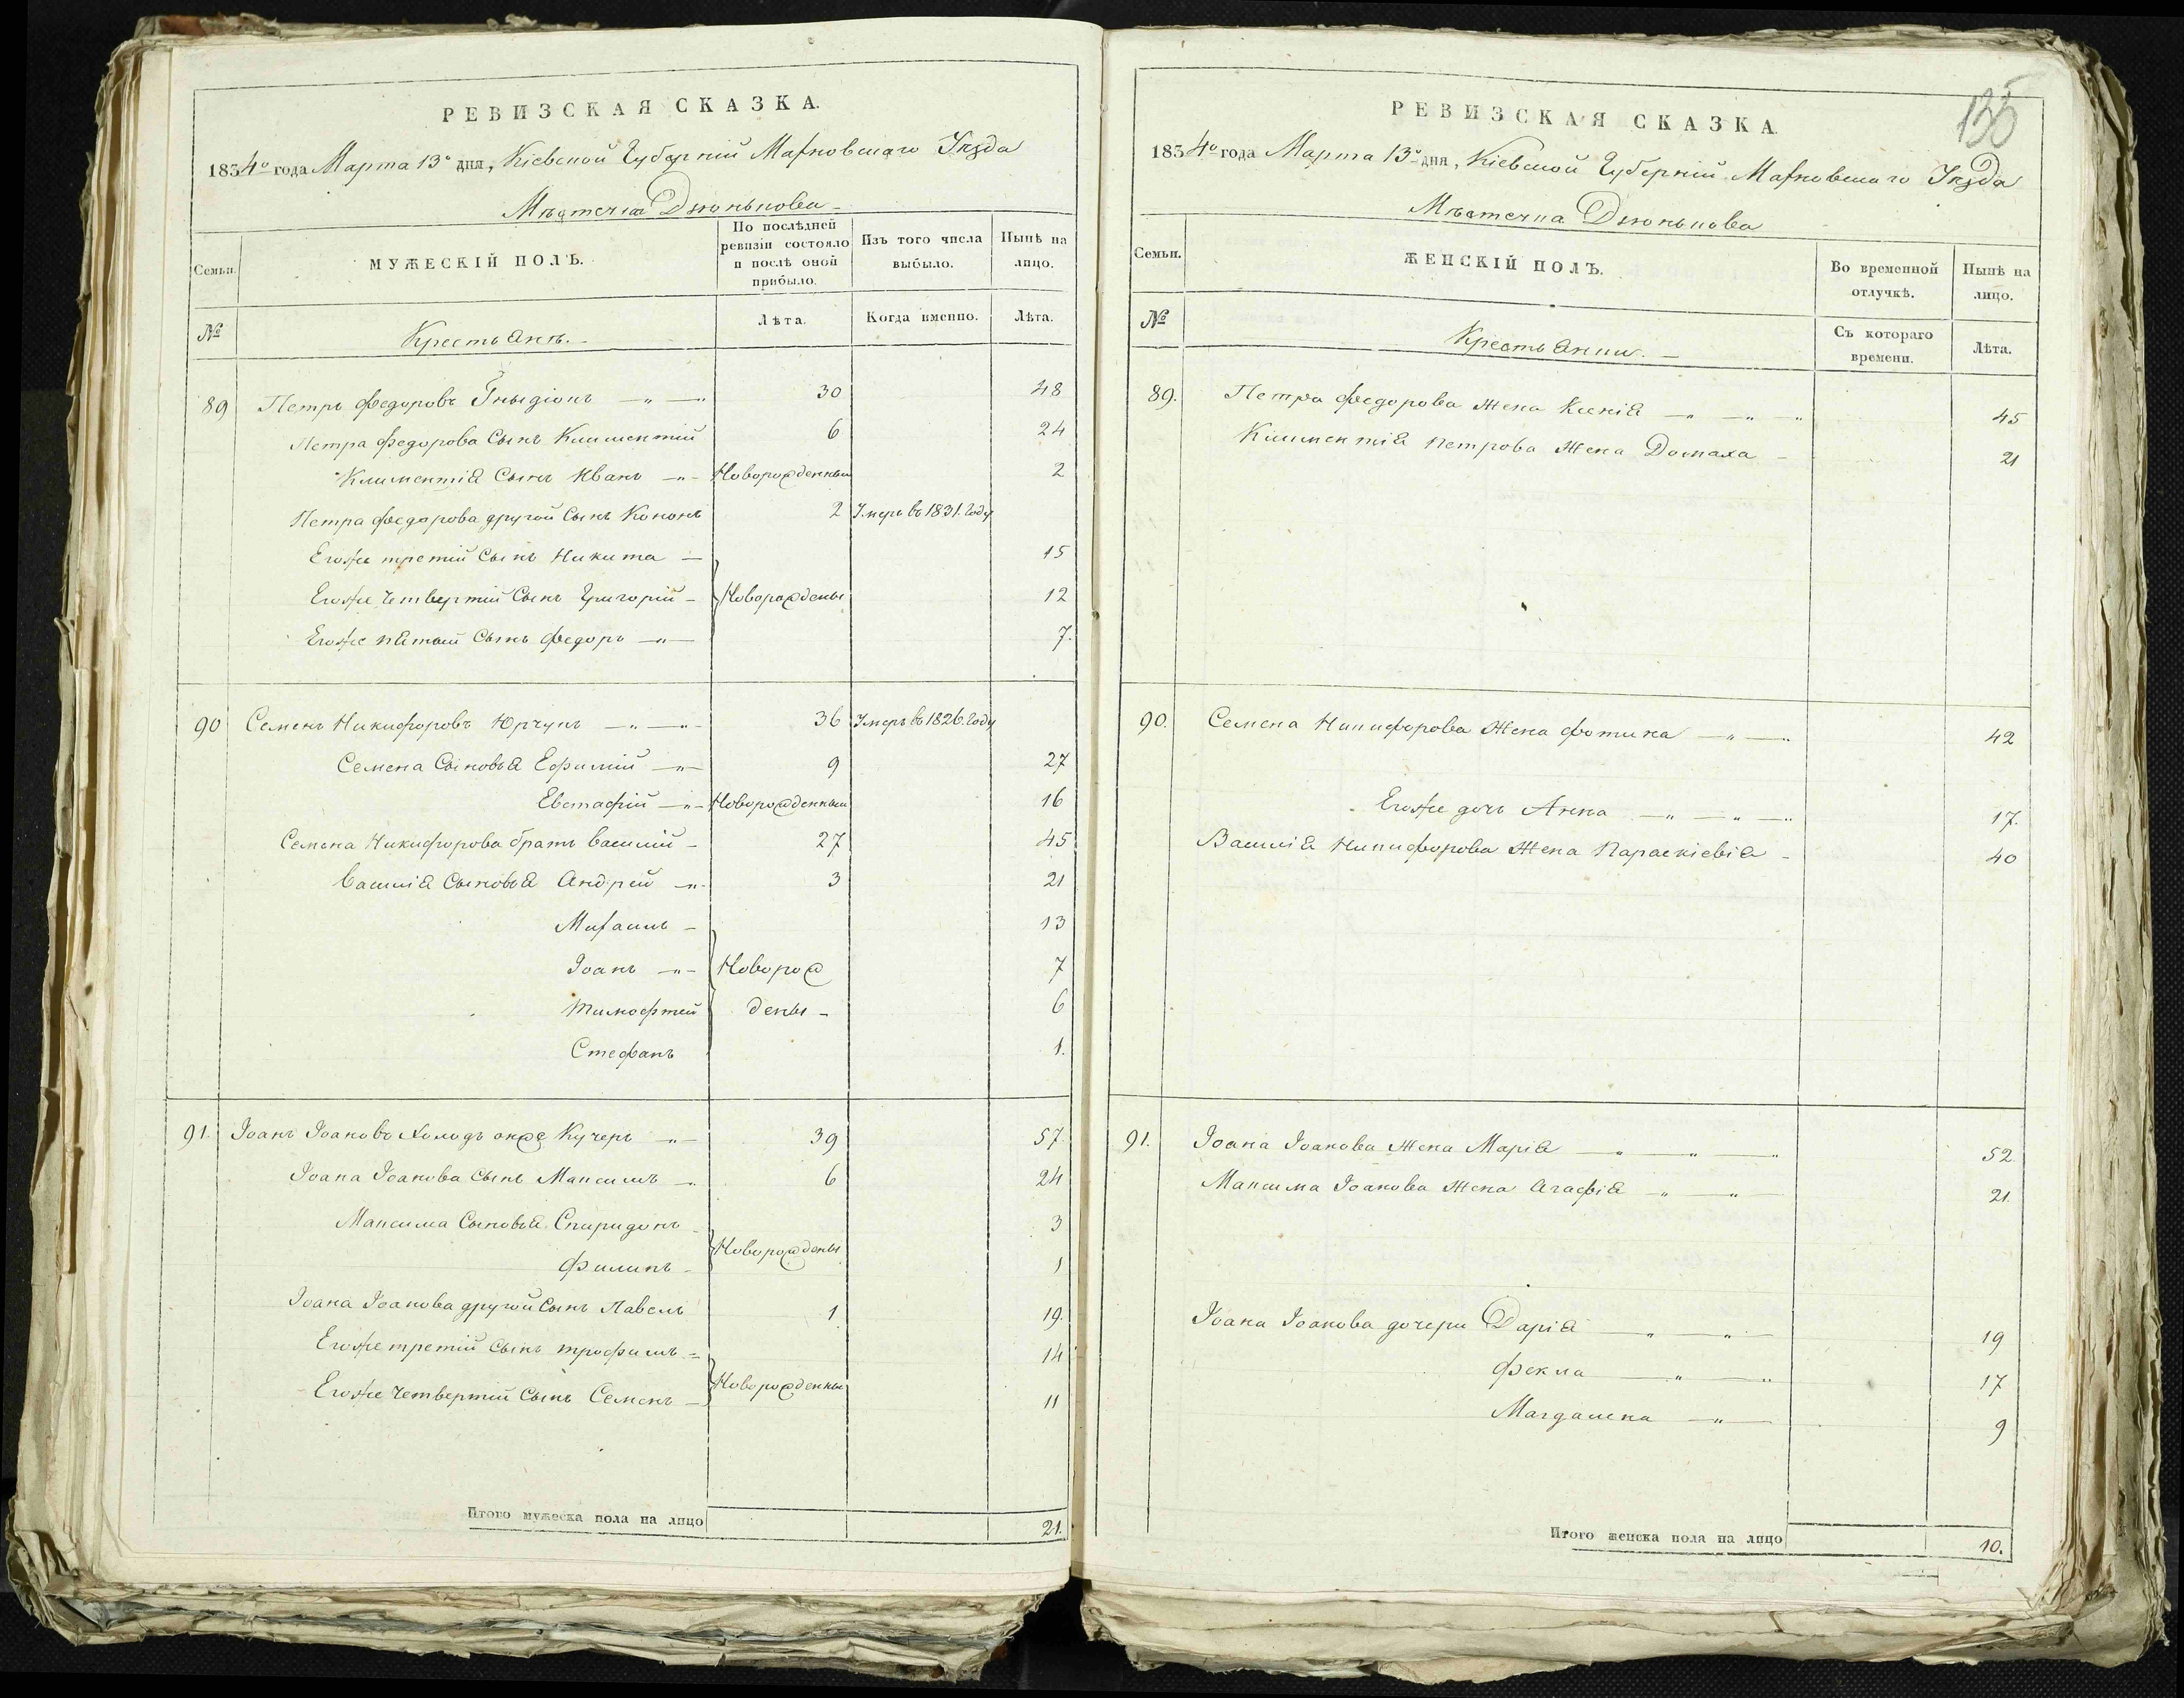 РЕВИЗСКАЯ СКАЗКА.
1834го года Марта 13го дня, Кіевской Губерніи Махновскаго Уѣзда
Мѣстечка Дзюнькова
Семьи.
МУЖЕСКІЙ ПОЛЪ.
По послѣдней ревизіи состояло и послѣ оной прибыло.
Изъ того числа выбыло.
Нынѣ на лицо.
№
Крестьянъ.
Лѣта.
Когда именно.
Лѣта.
89 Петръ Федоровъ 30 48
Петра Федорова Сынъ Климентий 6 24
Климентія Сынъ Иванъ Новорожденный 2
Петра Федорова другой Сынъ Кононъ 2 Умеръ въ 1831. Году
Егоже третий Сынъ Никита 15
Егоже Четвертий Сынъ Григорий Новорождены 12
Егоже пятый Сынъ Федоръ 7.
90 Семенъ Никифоровъ Юрчукъ 36 Умеръ въ 1826. Году
Семена Сыновья Ефимий 9 27
Евстафий Новорожденный 16
Семена Никифорова братъ Василий 27 45
Василія Сыновья Андрей 3 21
Михаилъ 13
Іоанъ Новорож 7
Тимофтей дены 6
Стефанъ 1.
91. Іоанъ Іоановъ Холодъ онже Кучеръ 39 57.
Іоана Іоанова Сынъ Максимъ 6 24
Максима Сыновья Спиридонъ 3
Новорождены
Филипъ 1
Іоана Іоанова другой Сынъ Павелъ 1 19.
Егоже третий Сынъ Трофимъ 14
Новорождены
Егоже Четвертий Сынъ Семенъ 11
Итого мужеска пола на лицо 21.
135
РЕВИЗСКАЯ СКАЗКА.
1834го года Марта 13го дня, Кіевской Губерніи Махновскаго Уѣзда
Мѣстечка Дзюнькова
Семьи.
ЖЕНСКІЙ ПОЛЪ.
Во временной отлучкѣ.
Нынѣ на лицо.
№
Крестьянки.
Съ котораго времени.
Лѣта.
89. Петра Федорова Жена Ксенія 45
Климентія Петрова Жена Домаха 21
90. Семена Никифорова Жена Фотина 42
Егоже дочь Анна 17.
Василія Никифорова Жена Параскіевія 40
91. Іоана Іоанова Жена Марія 52.
Максима Іоанова Жена Агафія 21.
Іоана Іоанова дочери Дарія 19
Фекла 17
Магдалена 9
Итого женска пола на лицо 10.